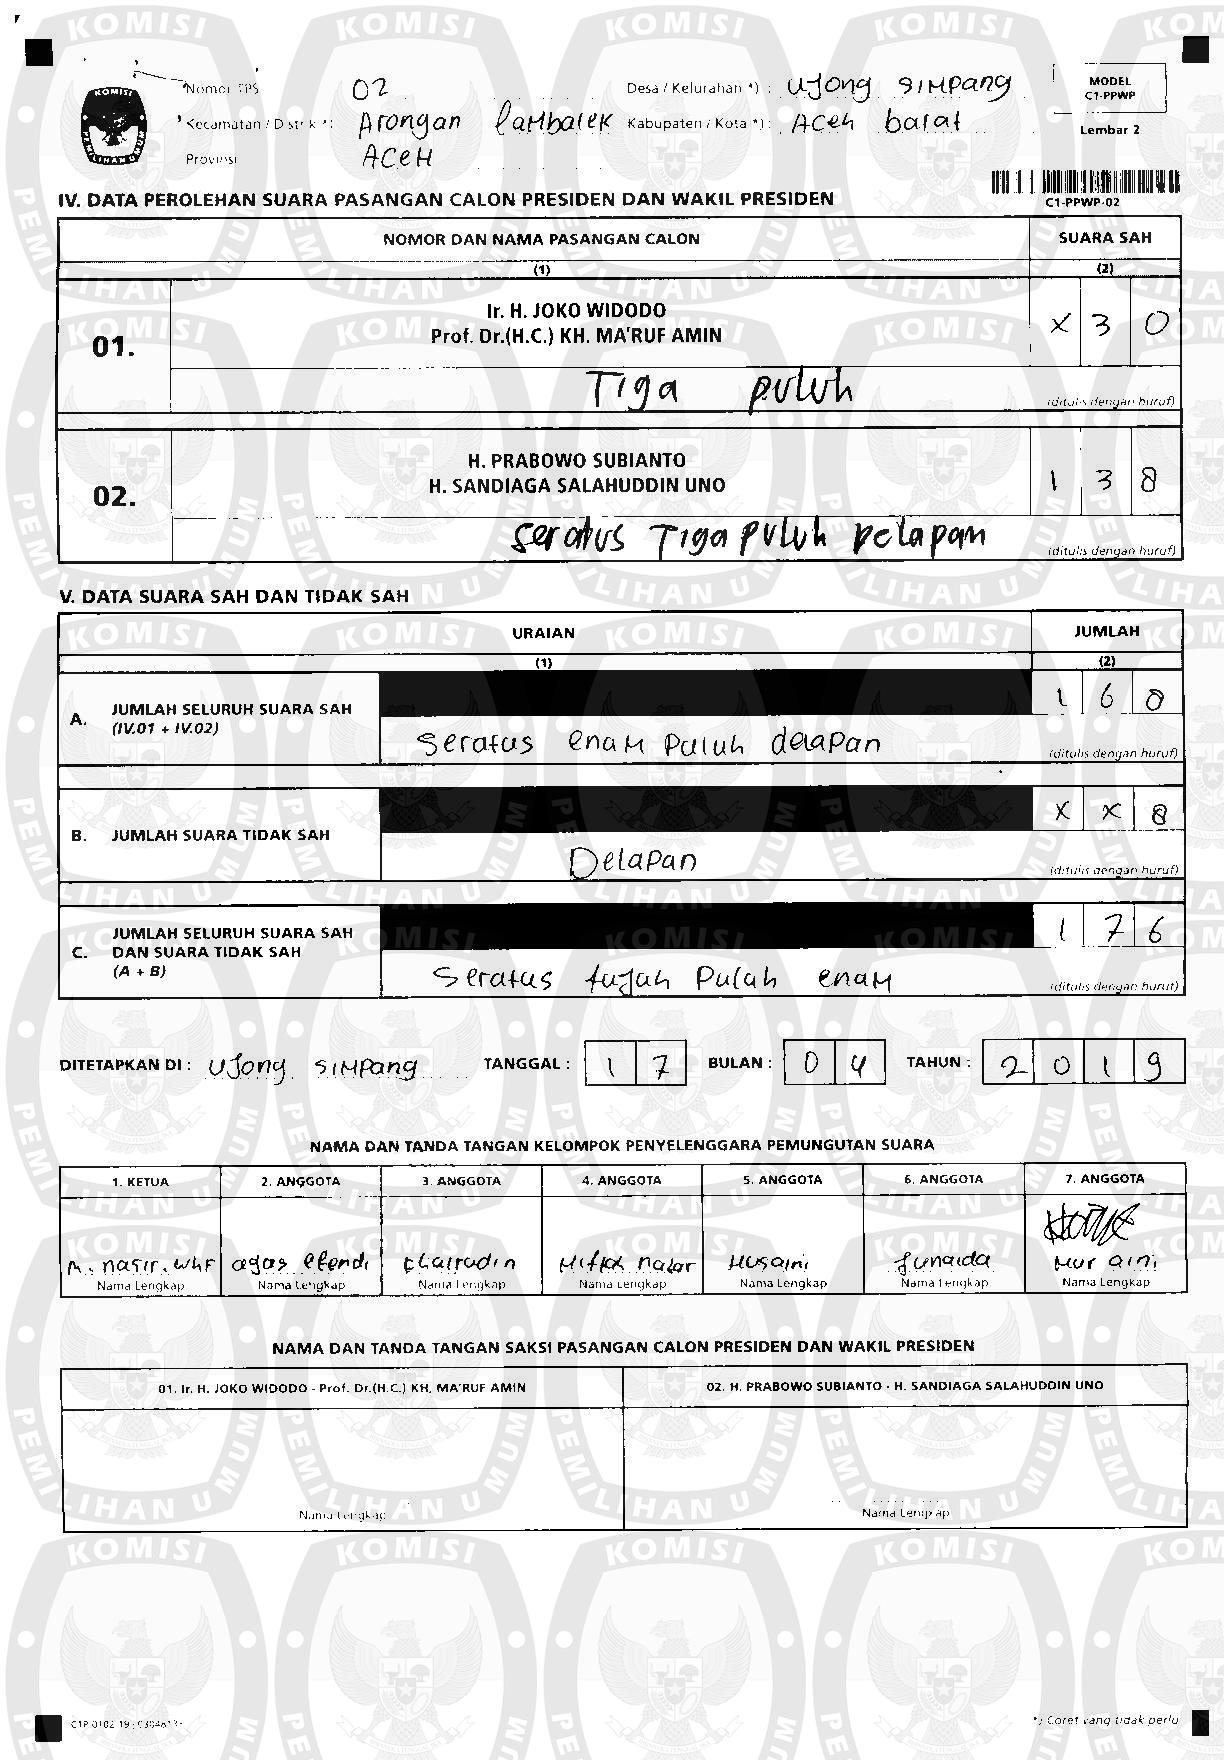 Nomor TPS 02 Desa / Kelurahan *) : Ujong Simpang MODEL C1-PPWP
Kecamatan / Distrik *) : Arongan Lambalek Kabupaten / Kota *) : Aceh barat Lembar 2
Provinsi ACeH
C1-PPWP-02
IV. DATA PEROLEHAN SUARA PASANGAN CALON PRESIDEN DAN WAKIL PRESIDEN
NOMOR DAN NAMA PASANGAN CALON SUARA SAH
(1) (2)
01. Ir. H. JOKO WIDODO
Prof. Dr.(H.C.) KH. MA'RUF AMIN X 3 0
Tiga puluh (ditulis dengan huruf)
02. H. PRABOWO SUBIANTO
H. SANDIAGA SALAHUDDIN UNO 1 3 8
seratus Tiga puluh Delapan (ditulis dengan huruf)
V. DATA SUARA SAH DAN TIDAK SAH
URAIAN JUMLAH
(1) (2)
A. JUMLAH SELURUH SUARA SAH
(IV.01 + IV.02) 1 6 8
Seratus enam Puluh delapan (ditulis dengan huruf)
B. JUMLAH SUARA TIDAK SAH X X 8
Delapan (ditulis dengan huruf)
C. JUMLAH SELURUH SUARA SAH
DAN SUARA TIDAK SAH
(A + B) 1 7 6
Seratus tujuh Puluh enam (ditulis dengan huruf)
DITETAPKAN DI : Ujong Simpang TANGGAL : 1 7 BULAN : 0 4 TAHUN : 2 0 1 9
NAMA DAN TANDA TANGAN KELOMPOK PENYELENGGARA PEMUNGUTAN SUARA
1. KETUA 2. ANGGOTA 3. ANGGOTA 4. ANGGOTA 5. ANGGOTA 6. ANGGOTA 7. ANGGOTA
M. nasir. agus efendi Husaini Junaida Nur aini
Nama Lengkap Nama Lengkap Nama Lengkap Nama Lengkap Nama Lengkap Nama Lengkap Nama Lengkap
NAMA DAN TANDA TANGAN SAKSI PASANGAN CALON PRESIDEN DAN WAKIL PRESIDEN
01. Ir. H. JOKO WIDODO - Prof. Dr.(H.C.) KH. MA'RUF AMIN 02. H. PRABOWO SUBIANTO - H. SANDIAGA SALAHUDDIN UNO
Nama Lengkap Nama Lengkap
*) Coret yang tidak perlu